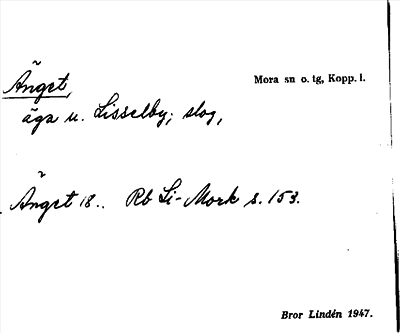 Änget,
Mora sn o. tg, Kopp. l.
äga u. Lisselby; slog,
Änget 18.. Rb Li-Mork s. 153.
Bror Lindén 1947.